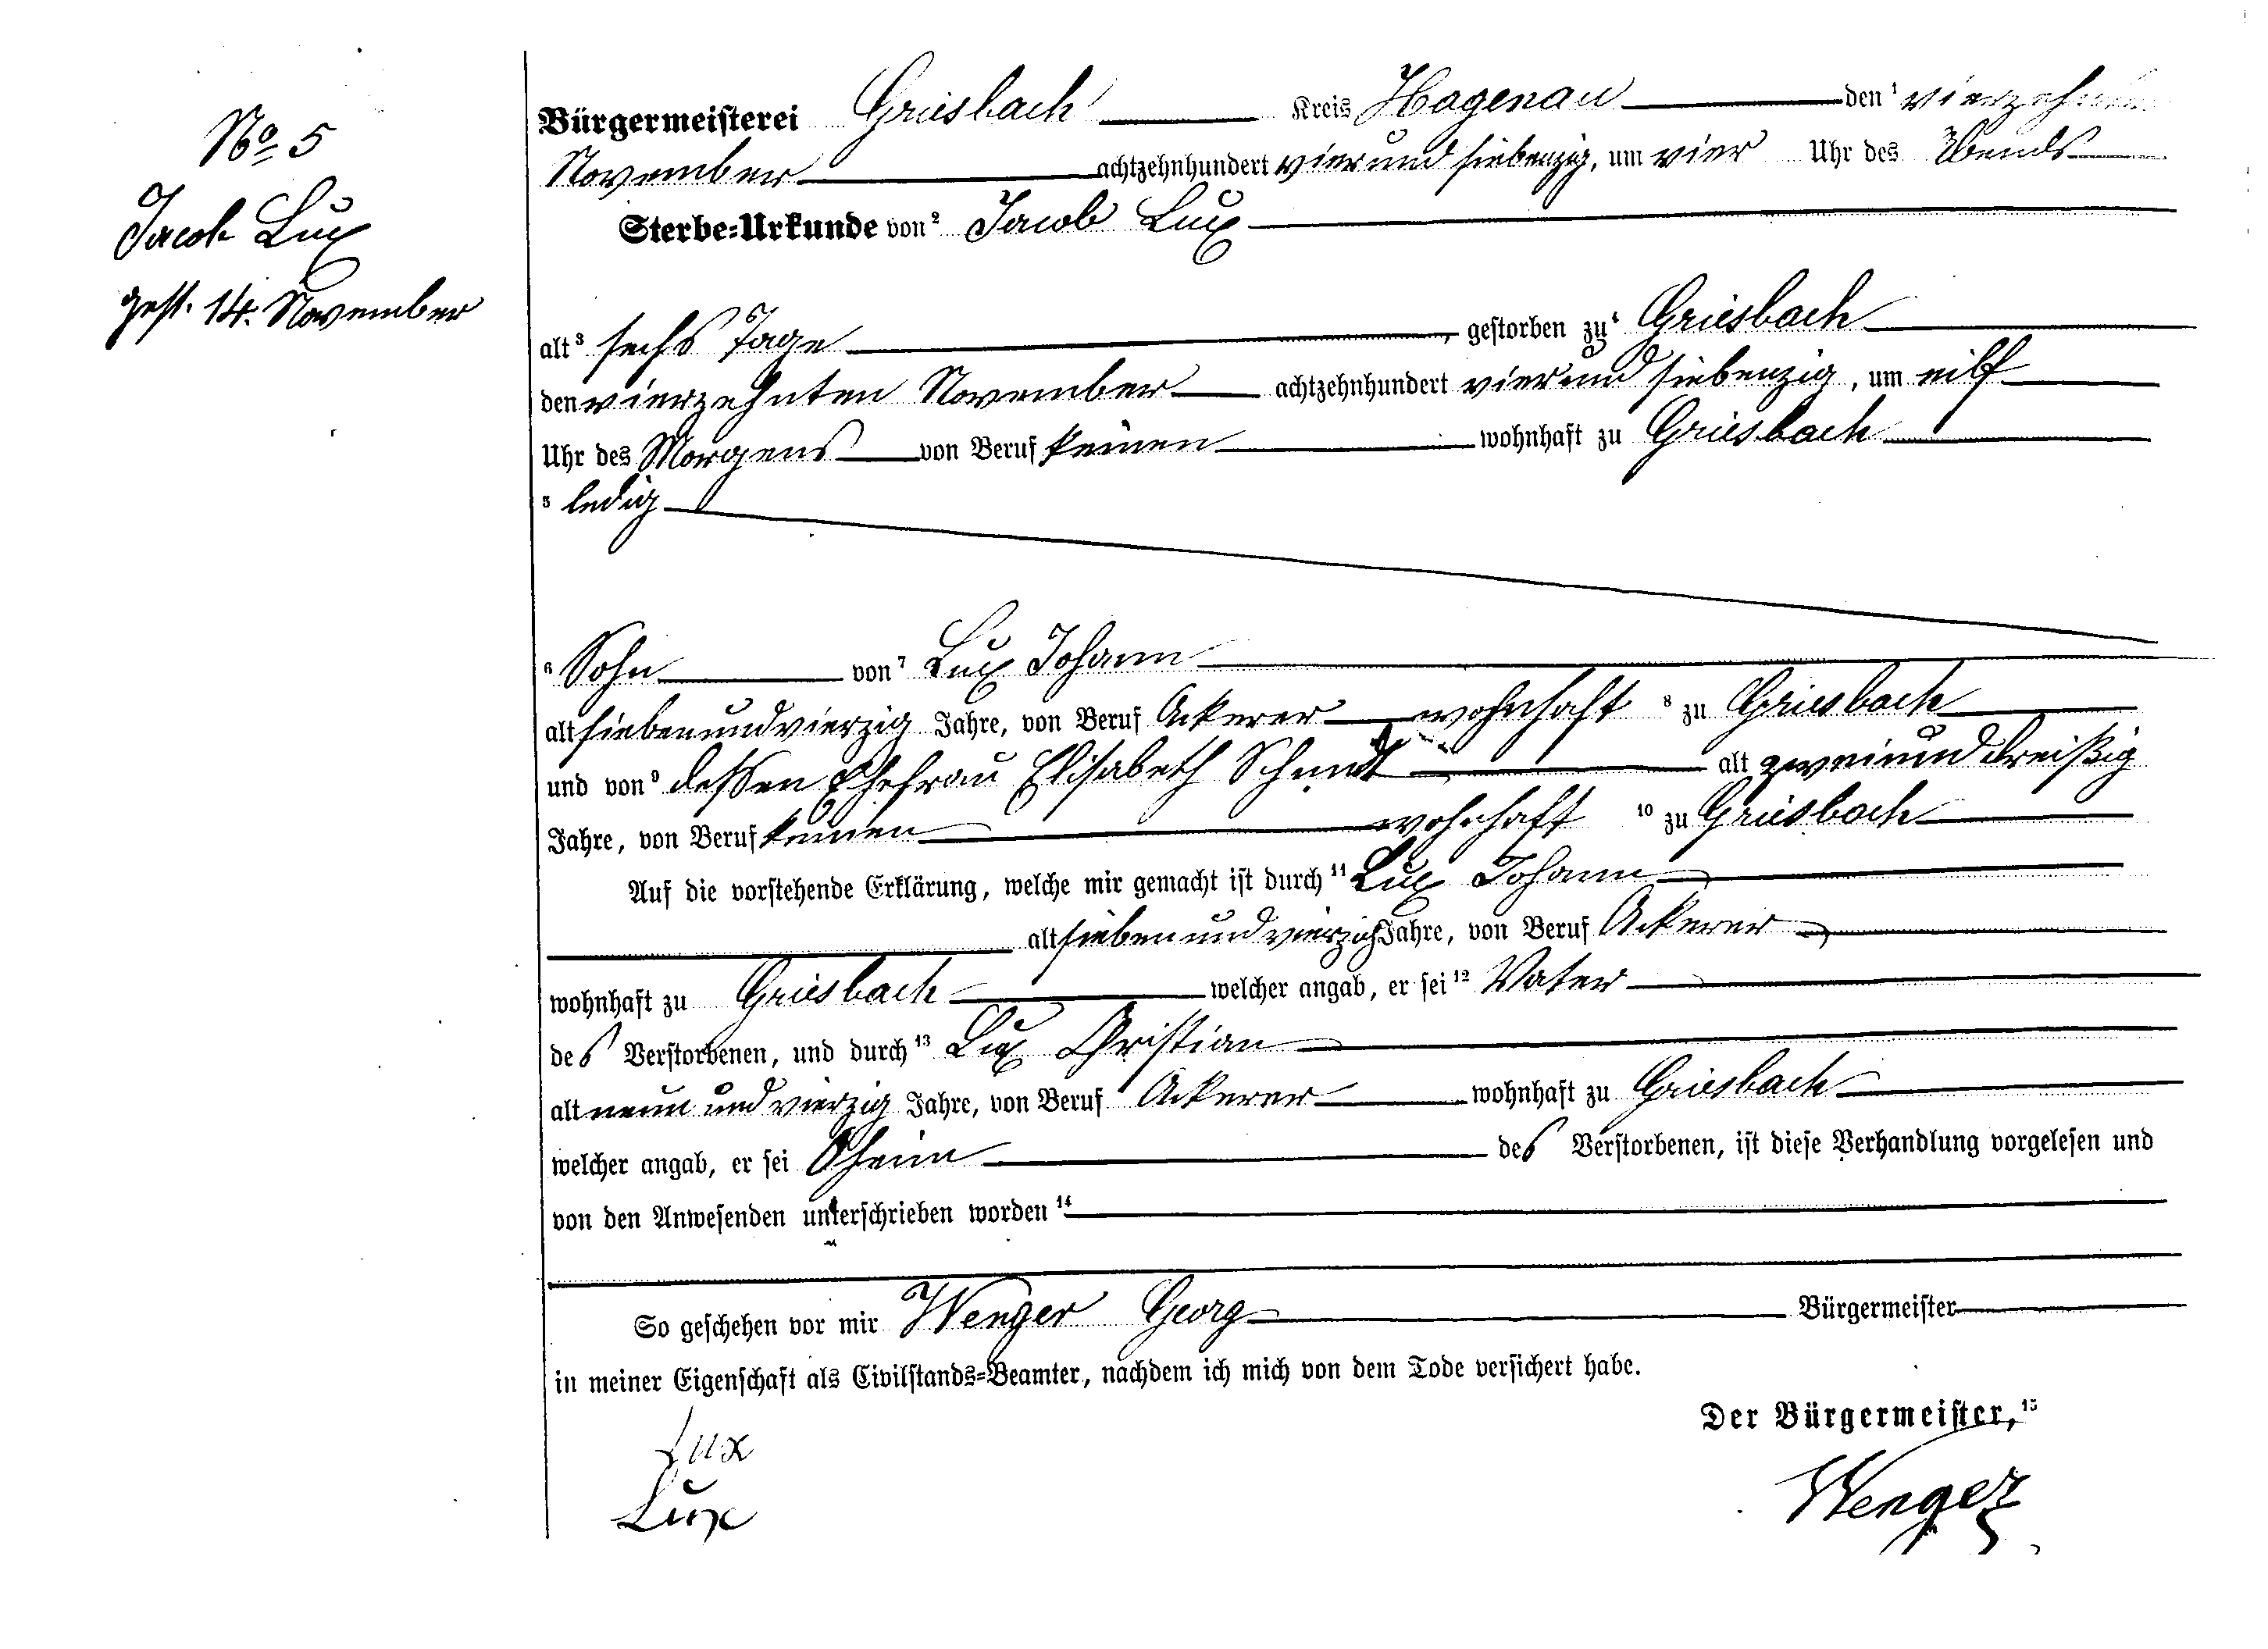 Nº 5
Jacob Lux
gest. 14. November
Bürgermeisterei Griesbach Kreis Hagenau den ¹ vierzehnten
November achtzehnhundert vier und siebenzig, um vier Uhr des Abends
Sterbe-Urkunde von ² Jacob Lux
alt ³ sechs Tage, gestorben zu ⁴ Griesbach
den vierzehnten November achtzehnhundert vier und siebenzig, um eilf
Uhr des Morgens von Beruf keinen wohnhaft zu Griesbach
⁵ ledig
⁶ Sohn von ⁷ Lux Johann
alt siebenundvierzig Jahre, von Beruf Ackerer wohnhaft ⁸ zu Griesbach
und von ⁹ dessen Ehefrau Elisabeth Schmidt alt zweiunddreißig
Jahre, von Beruf keinen wohnhaft ¹⁰ zu Griesbach
Auf die vorstehende Erklärung, welche mir gemacht ist durch ¹¹ Lux Johann
alt sieben und vierzig Jahre, von Beruf Ackerer
wohnhaft zu Griesbach welcher angab, er sei ¹² Vater
des Verstorbenen, und durch ¹³ Lux Christian
alt neun und vierzig Jahre, von Beruf Ackerer wohnhaft zu Griesbach
welcher angab, er sei Oheim des Verstorbenen, ist diese Verhandlung vorgelesen und
von den Anwesenden unterschrieben worden ¹⁴
So geschehen vor mir Wenger Georg Bürgermeister
in meiner Eigenschaft als Civilstands-Beamter, nachdem ich mich von dem Tode versichert habe.
Der Bürgermeister, ¹⁵
Lux
Lux
Wenger